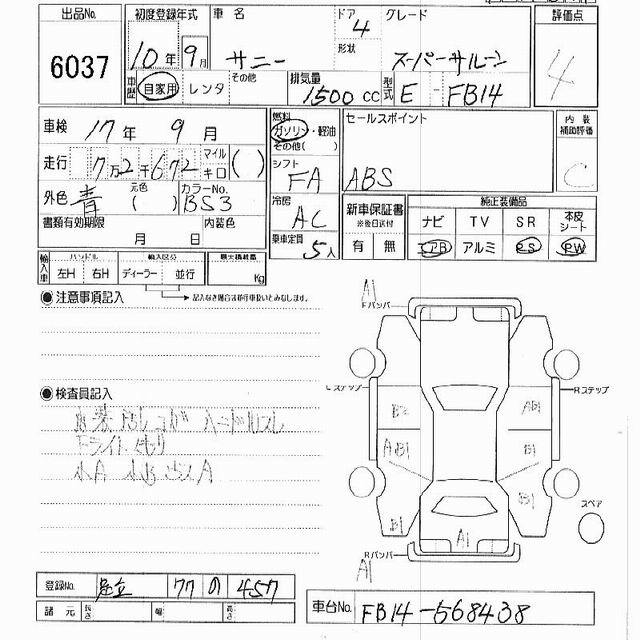 出品No. 6037
初度登録年式 10年 9月
車名 サニー
ドア 4
形状
グレード スーパーサルーン
評価点 4
車歴 自家用 レンタ その他
排気量 1500 CC
型式 E - FB14
車検 17年 9月
走行 7万2千672 マイル キロ ( )
外色 青 元色 ( ) カラーNo. BS3
書類有効期限 月 日 内装色
燃料 ガソリン・軽油 その他( )
シフト FA
冷房 AC
乗車定員 5人
セールスポイント
ABS
内装 補助評価 C
新車保証書 ※後日送付 有 無
純正装備品
ナビ TV SR 本皮シート
エアB アルミ PS PW
輸入車 ハンドル 左H 右H
輸入区分 ディーラー 並行
最大積載量 Kg
記入なき場合は並行車扱いとみなします。
◉注意事項記入
◉検査員記入
A1
Fバンパ
Lステップ
Rステップ
AB1
B1
B1
AB1
B1
A1
スペア
Rバンパ
A1
登録No. 足立 77 の 457
諸元 長さ 幅 高さ
車台No. FB14-568438